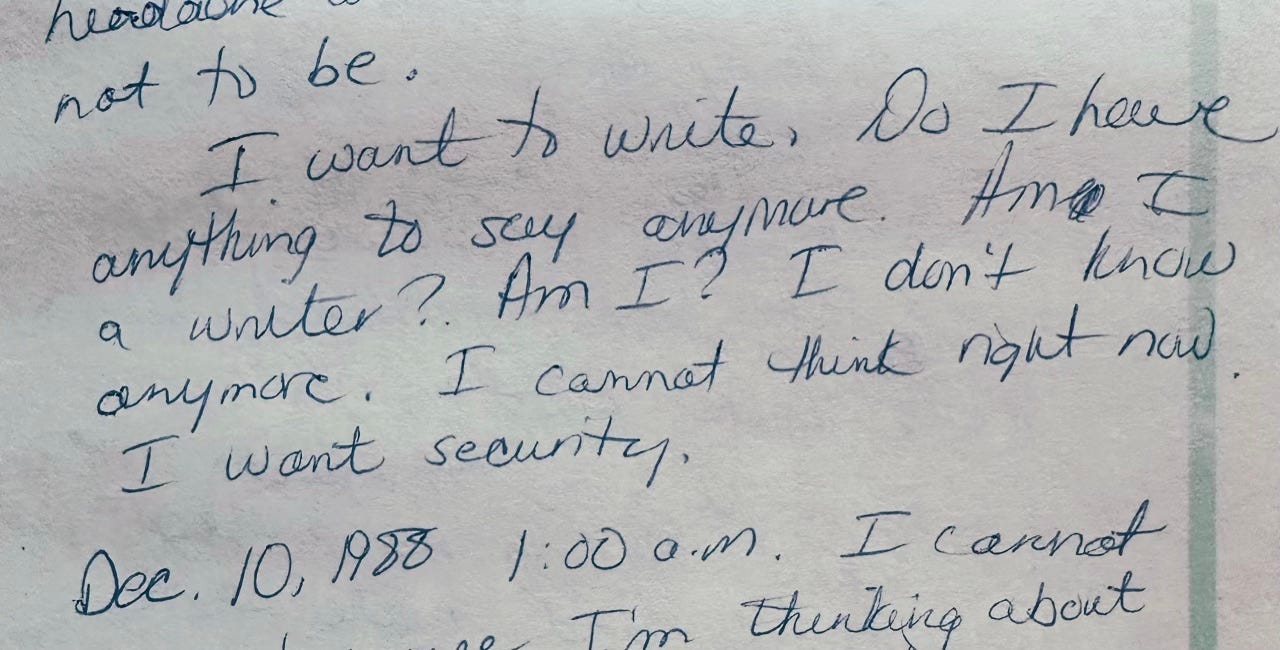 headache
not to be.
I want to write. Do I have
anything to say anymore. Am I
a writer? Am I? I don't know
anymore. I cannot think right now.
I want security.
Dec. 10, 1988 1:00 a.m. I cannot
I'm thinking about